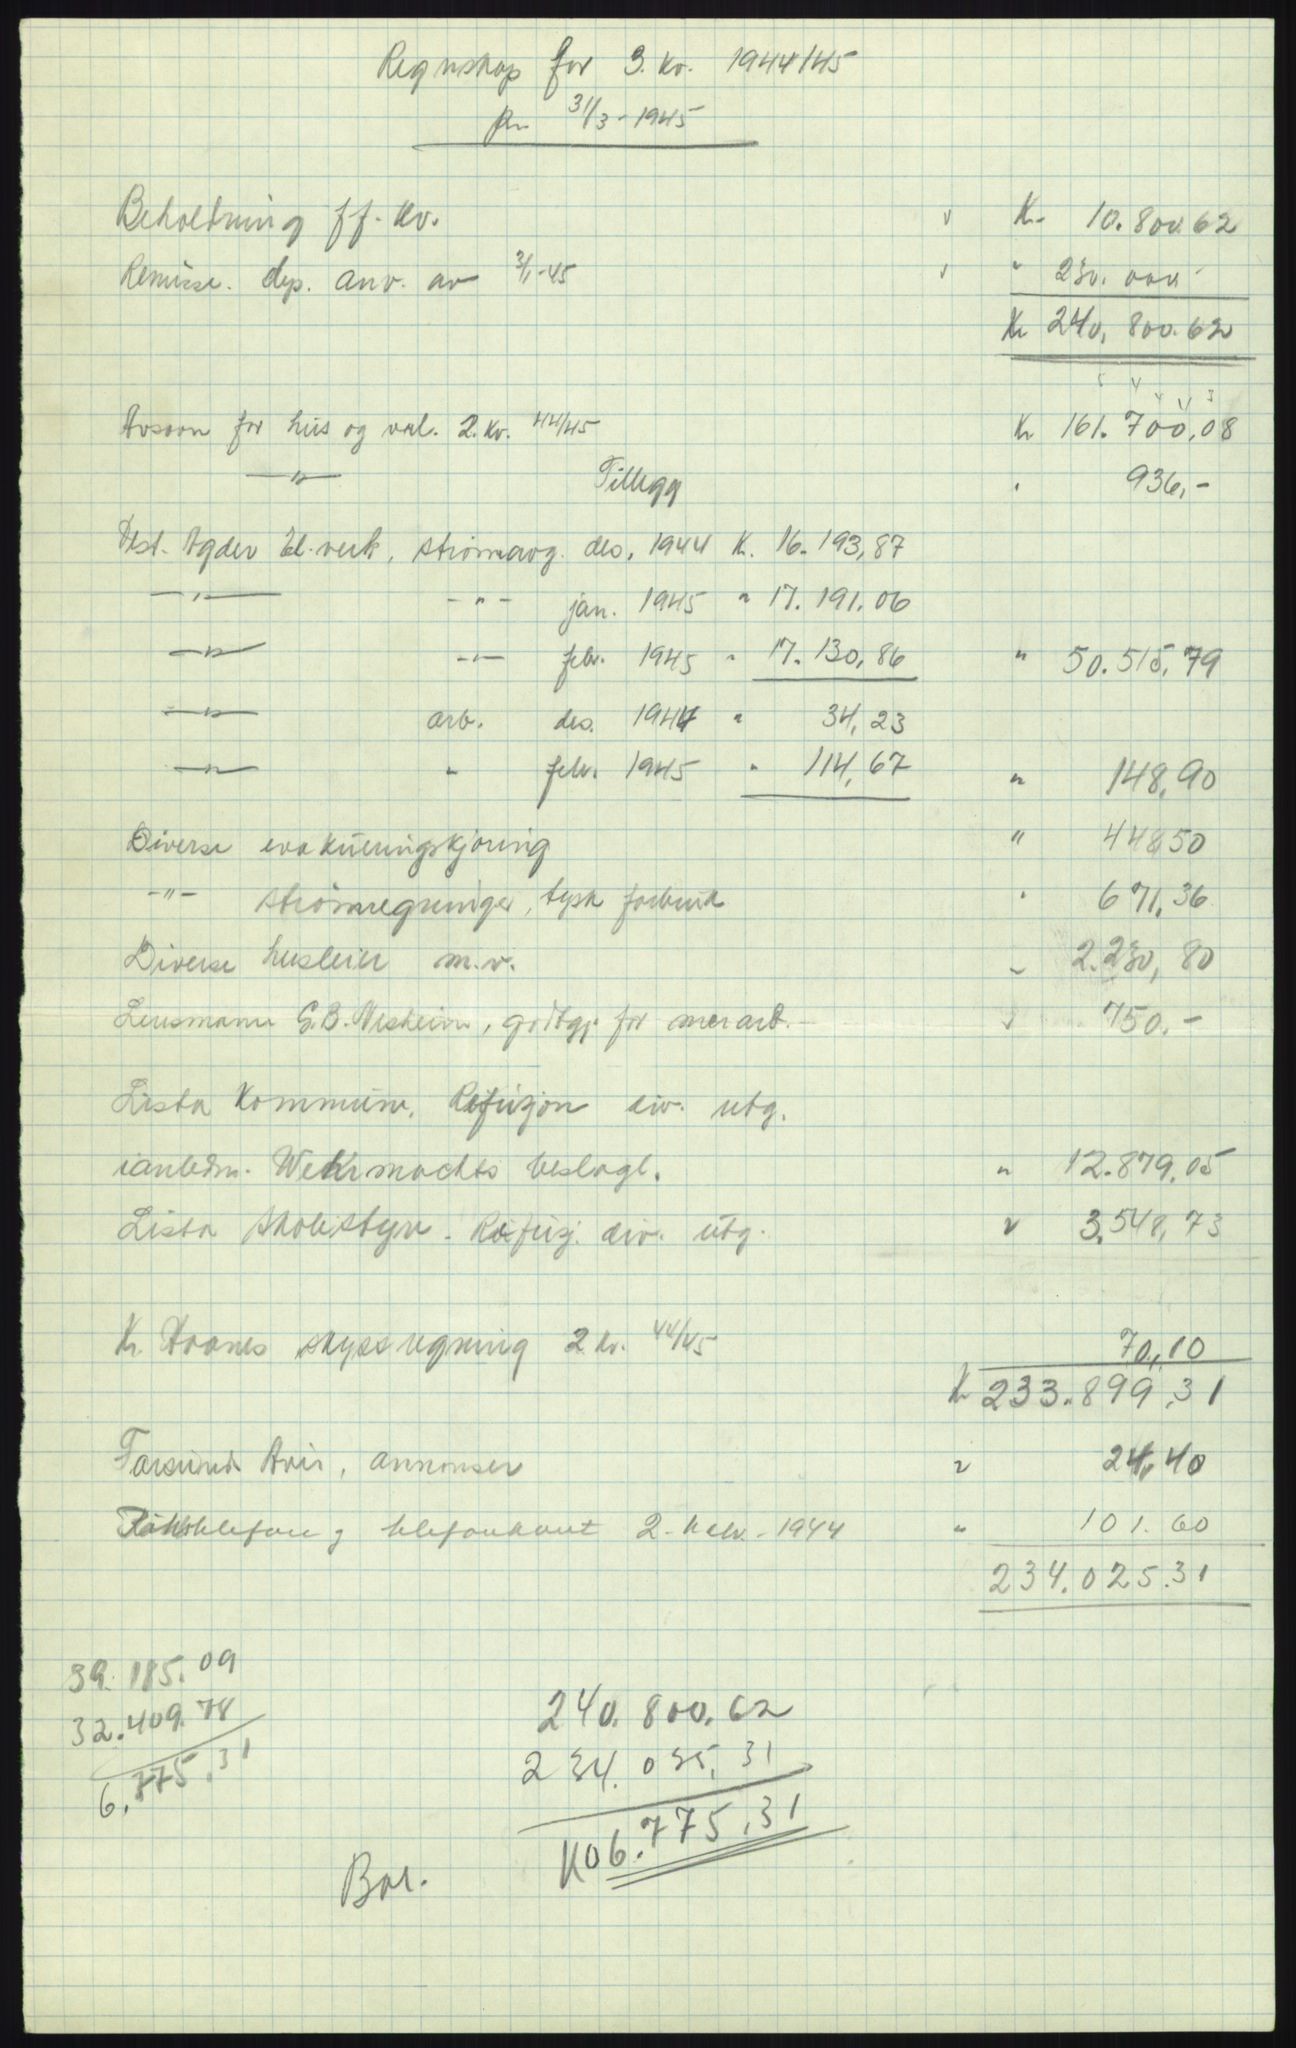 Regnskap for 3. kv. 1944/45
pr. 31/3-1945
Beholdning f.f. kv. Kr. 10.800.62
Remisse. dep. anv. av 3/1-45 " 230.000.-
Kr 240,800.62
Avsavn for hus og var. 2. kv. 44/45 Kr 161.700,08
—"— Tillegg " 936,-
Vest-Agder El.verk, strømavg. des. 1944 K. 16.193,87
—"— -"- jan. 1945 " 17.191.06
—"— -"- febr. 1945 " 17.130,86 " 50.515,79
—"— arb. des. 1944 " 34,23
—"— " febr. 1945 " 114,67 " 148,90
Diverse evakueringskjøring " 448,50
-"- strømregninger, tysk forbruk " 671,36
Diverse husleier m.v. " 2.230,80
Lensmann G.B. Vesheim, godtgj. for merarb. - " 750.-
Lista Kommune, Refusjon div. utg.
i anledn. Wehrmachts beslagl. " 12.879,05
Lista Skolestyre - Refusj. div. utg. " 3.548,73
Kr. Aanes skyssregning 2 kv. 44/45 70,10
Kr 233.899,31
Farsunds Avis, annonser " 24,40
Rikstelefon og telefonkont 2-halv.-1944 " 101.60
234.025.31
39.185.09
32.409.78
6.775,31
240.800.62
234.025,31
Kr 6.775,31
Bal.